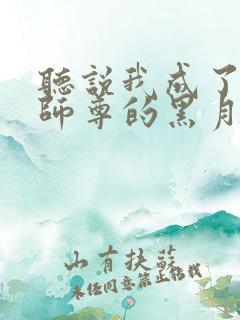 聽說我成了
師尊的黑月
山有扶蘇
未经同意禁止转载